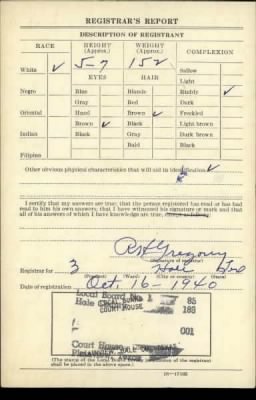 REGISTRAR'S REPORT
DESCRIPTION OF REGISTRANT
RACE HEIGHT (Approx.) WEIGHT (Approx.) COMPLEXION
White ✓ 5-7 152 Sallow
EYES HAIR Light
Negro Blue Blonde Ruddy ✓
Gray Red Dark
Oriental Hazel Brown ✓ Freckled
Brown ✓ Black Light brown
Indian Black Gray Dark brown
Bald Black
Filipino
Other obvious physical characteristics that will aid in identification
I certify that my answers are true; that the person registered has read or has had
read to him his own answers; that I have witnessed his signature or mark and that
all of his answers of which I have knowledge are true, except as follows:
R H Gregory
(Signature of registrar)
Registrar for 3 Hale
(Precinct) (Ward) (City or county) (State)
Date of registration Oct. 16-1940
Local Board No. 1 85
Hale 185
COURT HOUSE
001
Court House
(The stamp of the Local Board having jurisdiction of the registrant
shall be placed in the above space.)